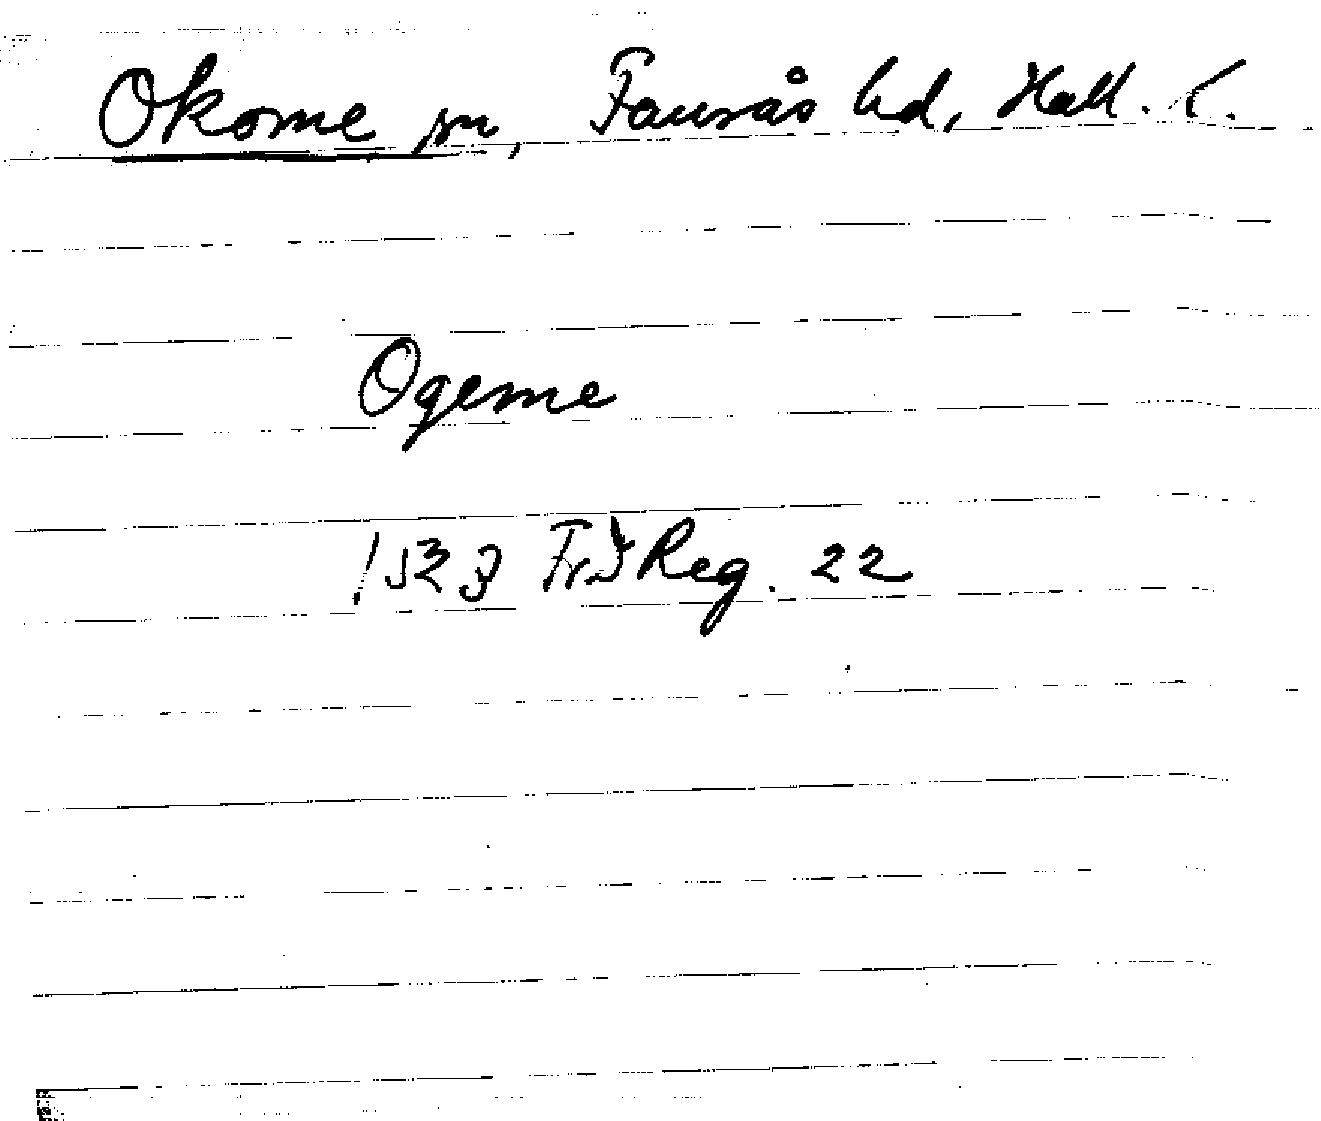 Okome sn, Faurås hd, Hall. l.
Ogeme
1523 FrIReg. 22